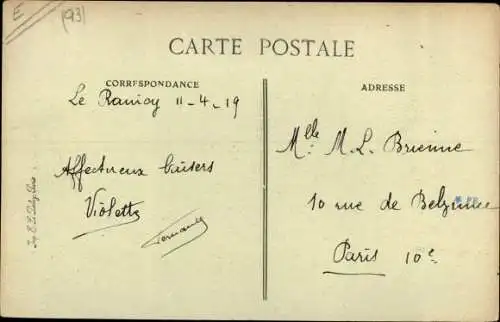 E
(93)
CARTE POSTALE
CORRESPONDANCE
Le Raincy 11-4-19
Affectueux baisers
Violette
Fernande
ADRESSE
Mlle. M. L. Brienne
10 rue de Belzunce
Paris 10e